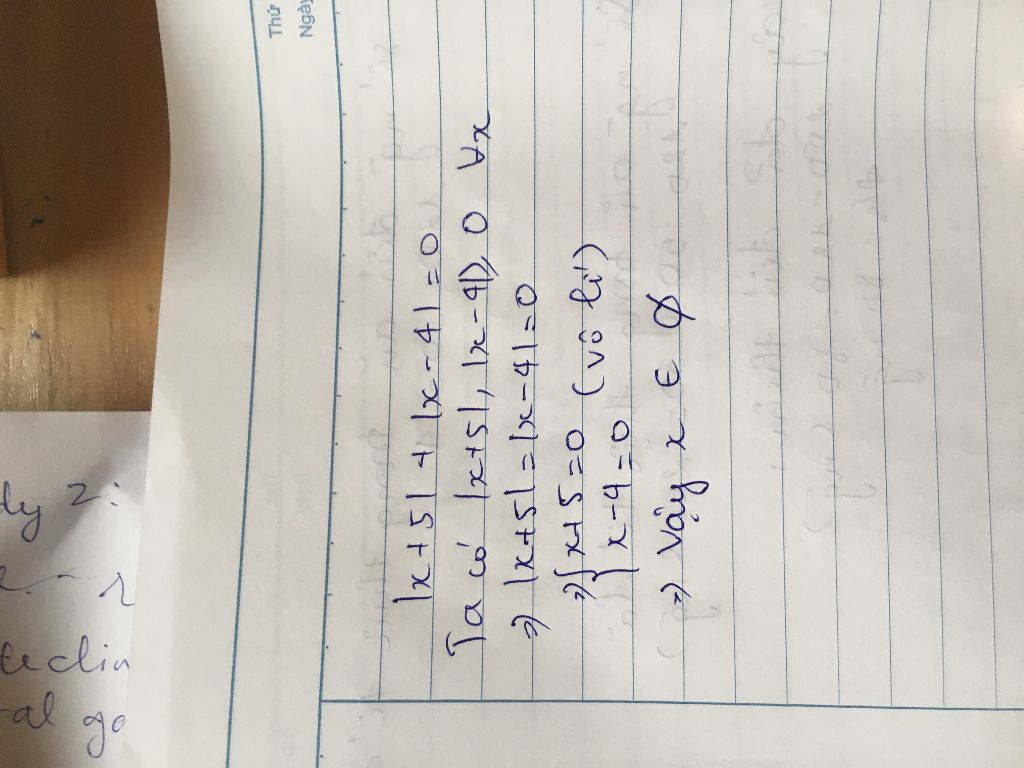 Thứ
Ngày
|x+5| + |x-4| = 0
Ta có |x+5|, |x-4| ≥ 0 ∀x
⇒ |x+5| = |x-4| = 0
⇒ { x+5=0 (vô lí)
{ x-4=0
⇒ Vậy x ∈ ∅
dy 2:
te clin
ral go